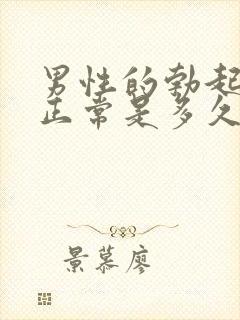 男性的勃起
正常是多久
景慕廖